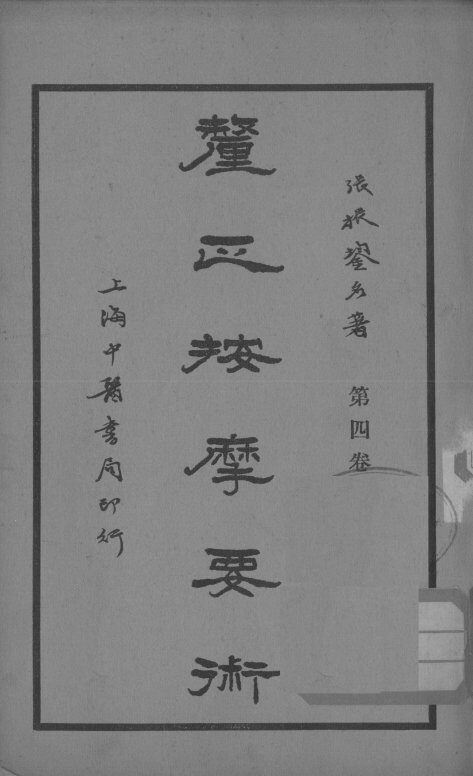 張振鋆名著 第四卷
釐正按摩要術
上海中醫書局印行